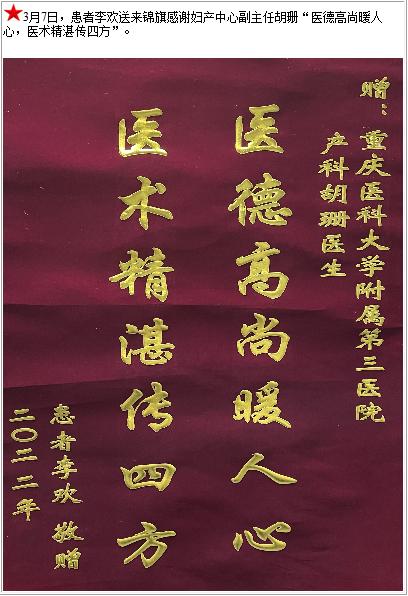 ★3月7日，患者李欢送来锦旗感谢妇产中心副主任胡珊“医德高尚暖人
心，医术精湛传四方”。
赠：重庆医科大学附属第三医院
产科胡珊医生
医德高尚暖人心
医术精湛传四方
患者李欢 敬赠
二〇二二年